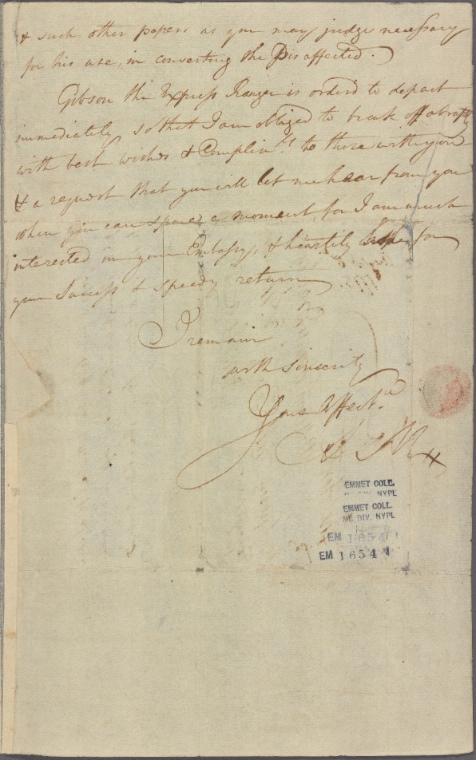 & such other papers as you may judge necessary
for his use, in converting the Disaffected.
Gibson the Express Ranger is orderd to depart
immediately, so that I am obliged to break off abruptly
with best wishes & Complimts. to those with you
& a request that you will let me hear from you
when you can spare a moment, for I am much
interested in your Embassy, & heartily hope for
your Success & speedy return
I remain
with Sincerity
Your Affect.
EMMET COLL.
NYPL
EMMET COLL.
MS. DIV. NYPL
EM 1654
EM 1654